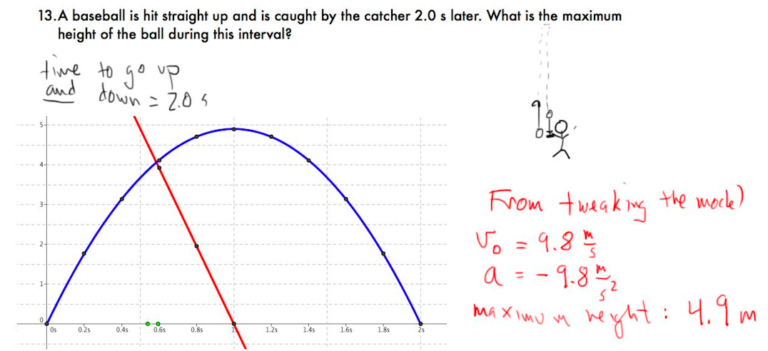 13.A baseball is hit straight up and is caught by the catcher 2.0 s later. What is the maximum
height of the ball during this interval?
time to go up
and down = 2.0 s
5
4
3
2
1
0
0s 0.2s 0.4s 0.6s 0.8s 1.2s 1.4s 1.6s 1.8s 2s
From tweaking the model
v₀ = 9.8 m/s
a = - 9.8 m/s²
maximum height : 4.9 m